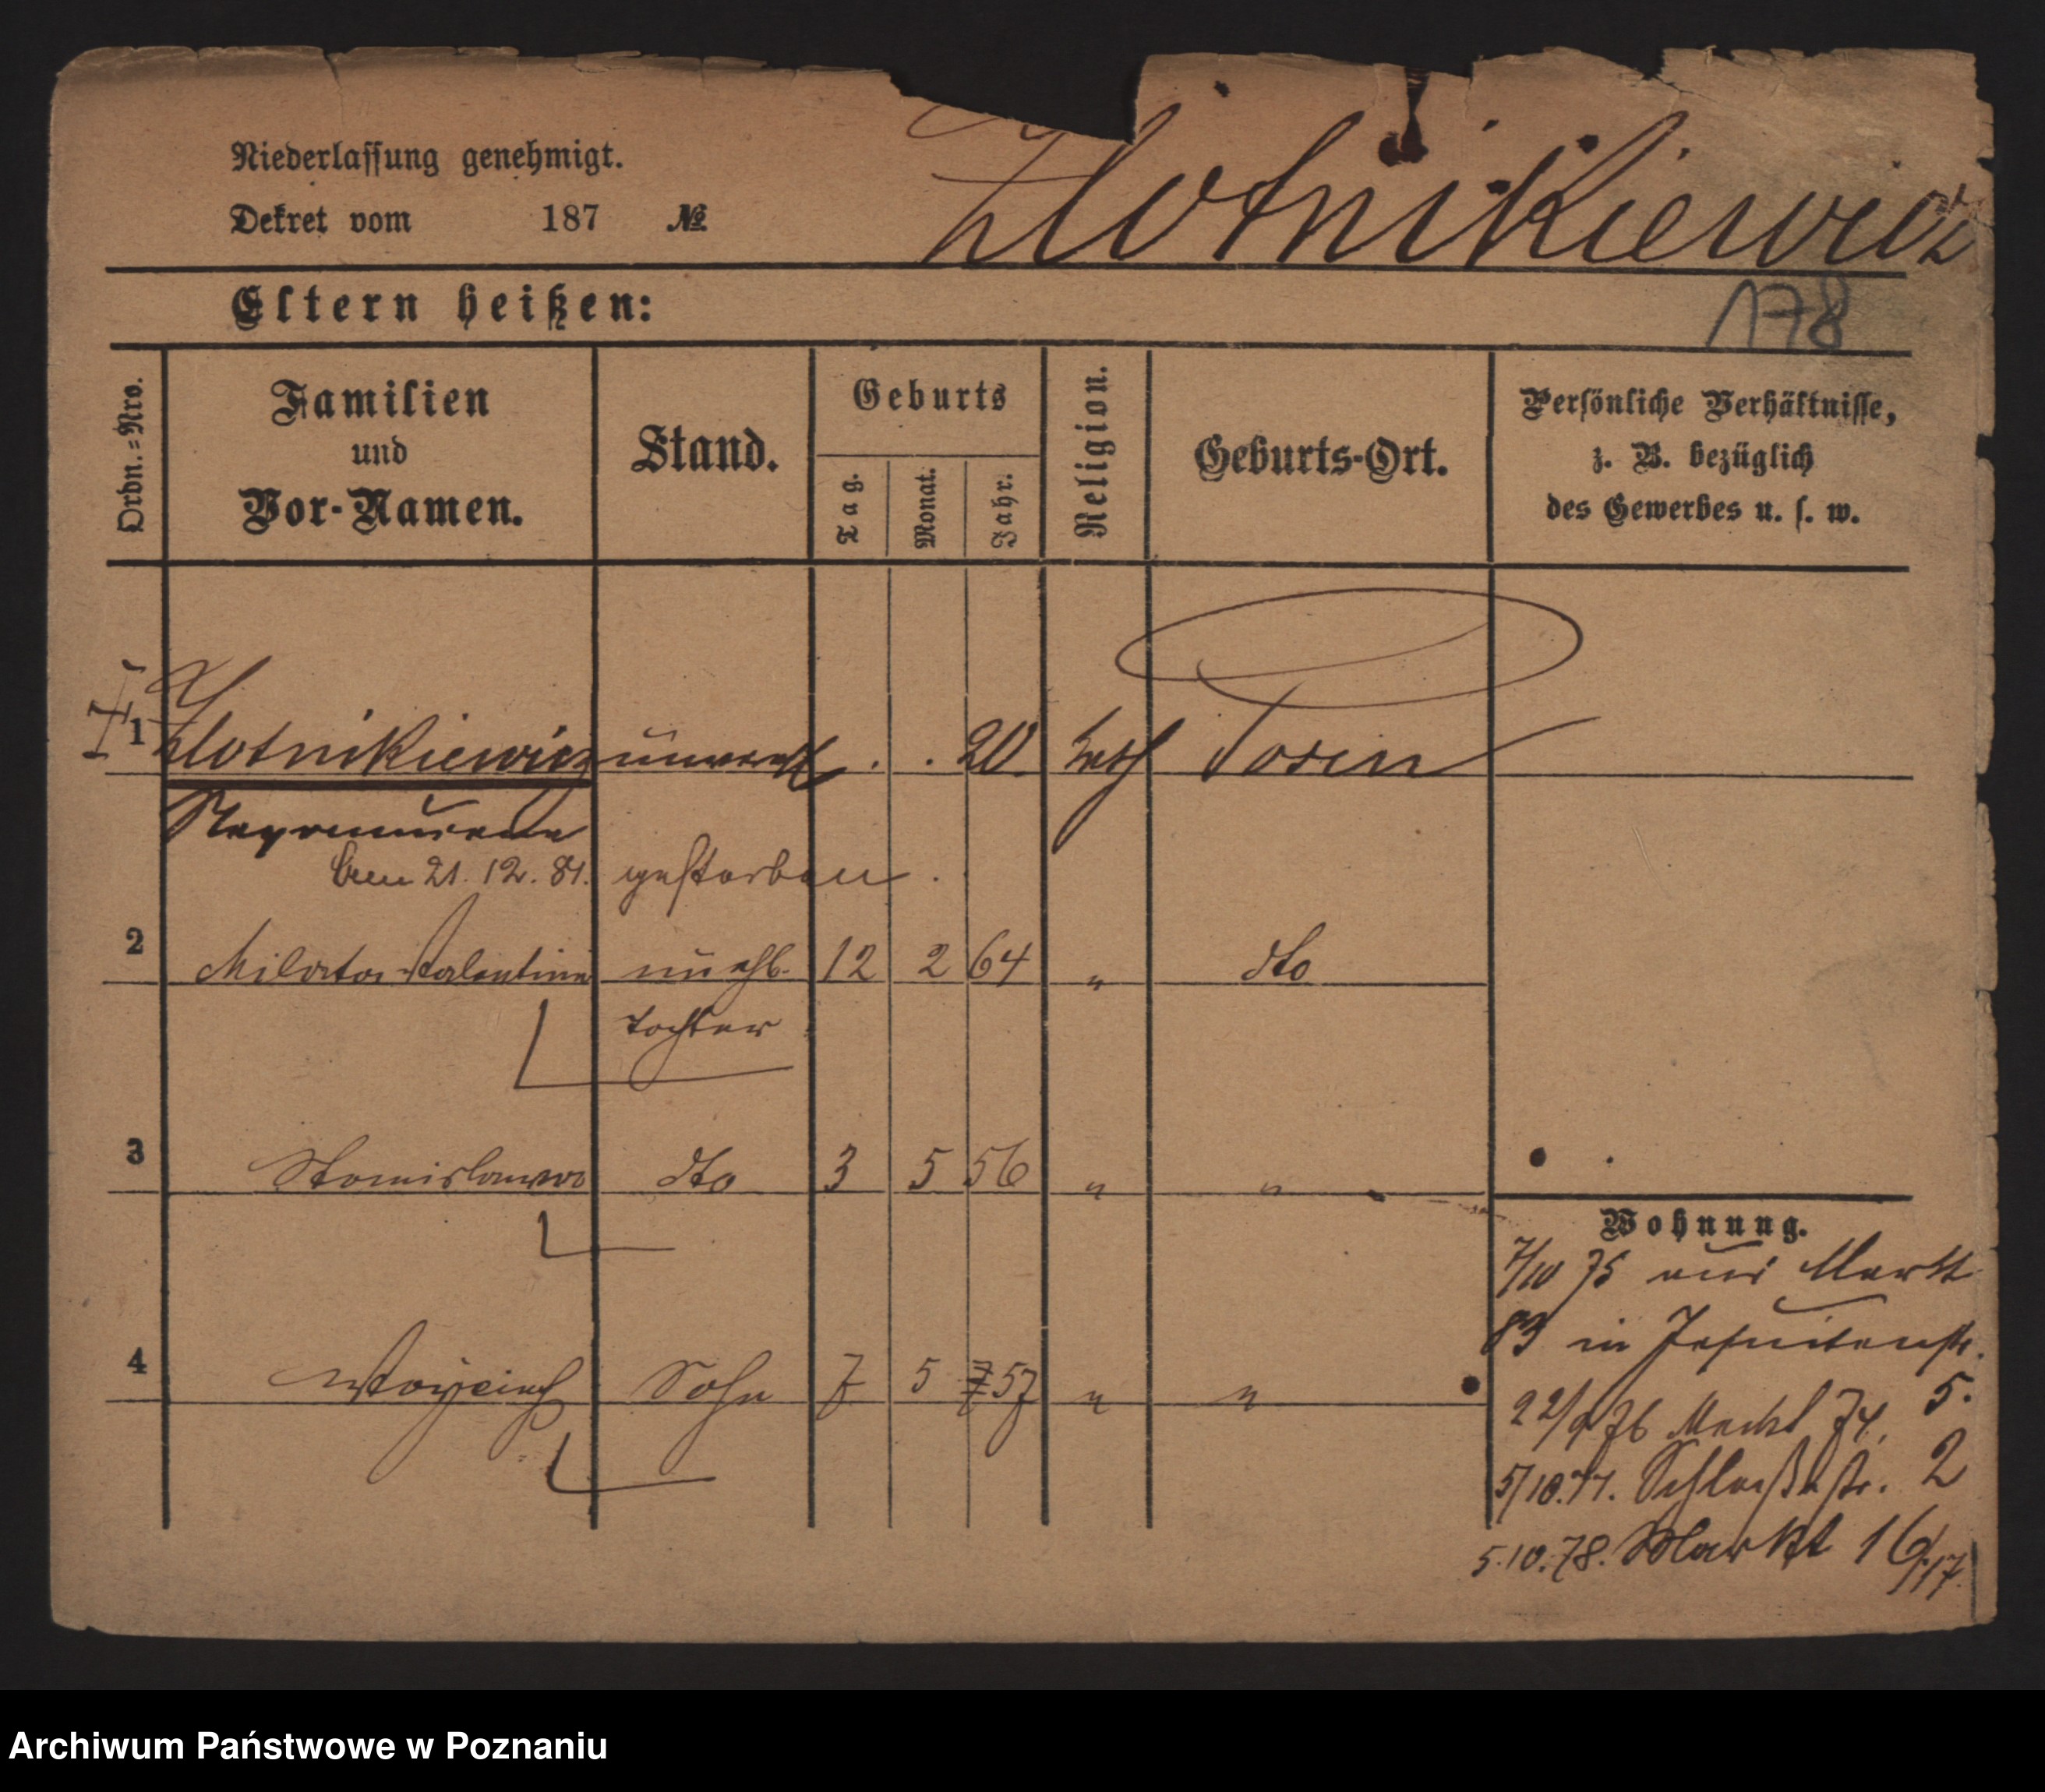 Niederlassung genehmigt.
Zlotnikiewicz
Dekret vom 187 №
Eltern heißen:
178
Ordn.=Nro.
Familien
und
Vor-Namen.
Stand.
Geburts
Tag.
Monat.
Jahr.
Religion.
Geburts-Ort.
Persönliche Verhältnisse,
z. B. bezüglich
des Gewerbes u. s. w.
1 Zlotnikiewicz unverehl . . 20 kath Posen
den 21. 12. 81. gestorben.
2 Valentine unehl. 12 2 64 " dto
Tochter
3 Stanislawa dto 3 5 56 " "
4 Woyciech Sohn 7 5 57 " "
Wohnung.
7/10 75 aus Markt
83 in Jesuitenstr.
5.
22/9 76 Markt 74.
5/10.77. Schloßstr. 2
5.10.78. Markt 16/17.
Archiwum Państwowe w Poznaniu